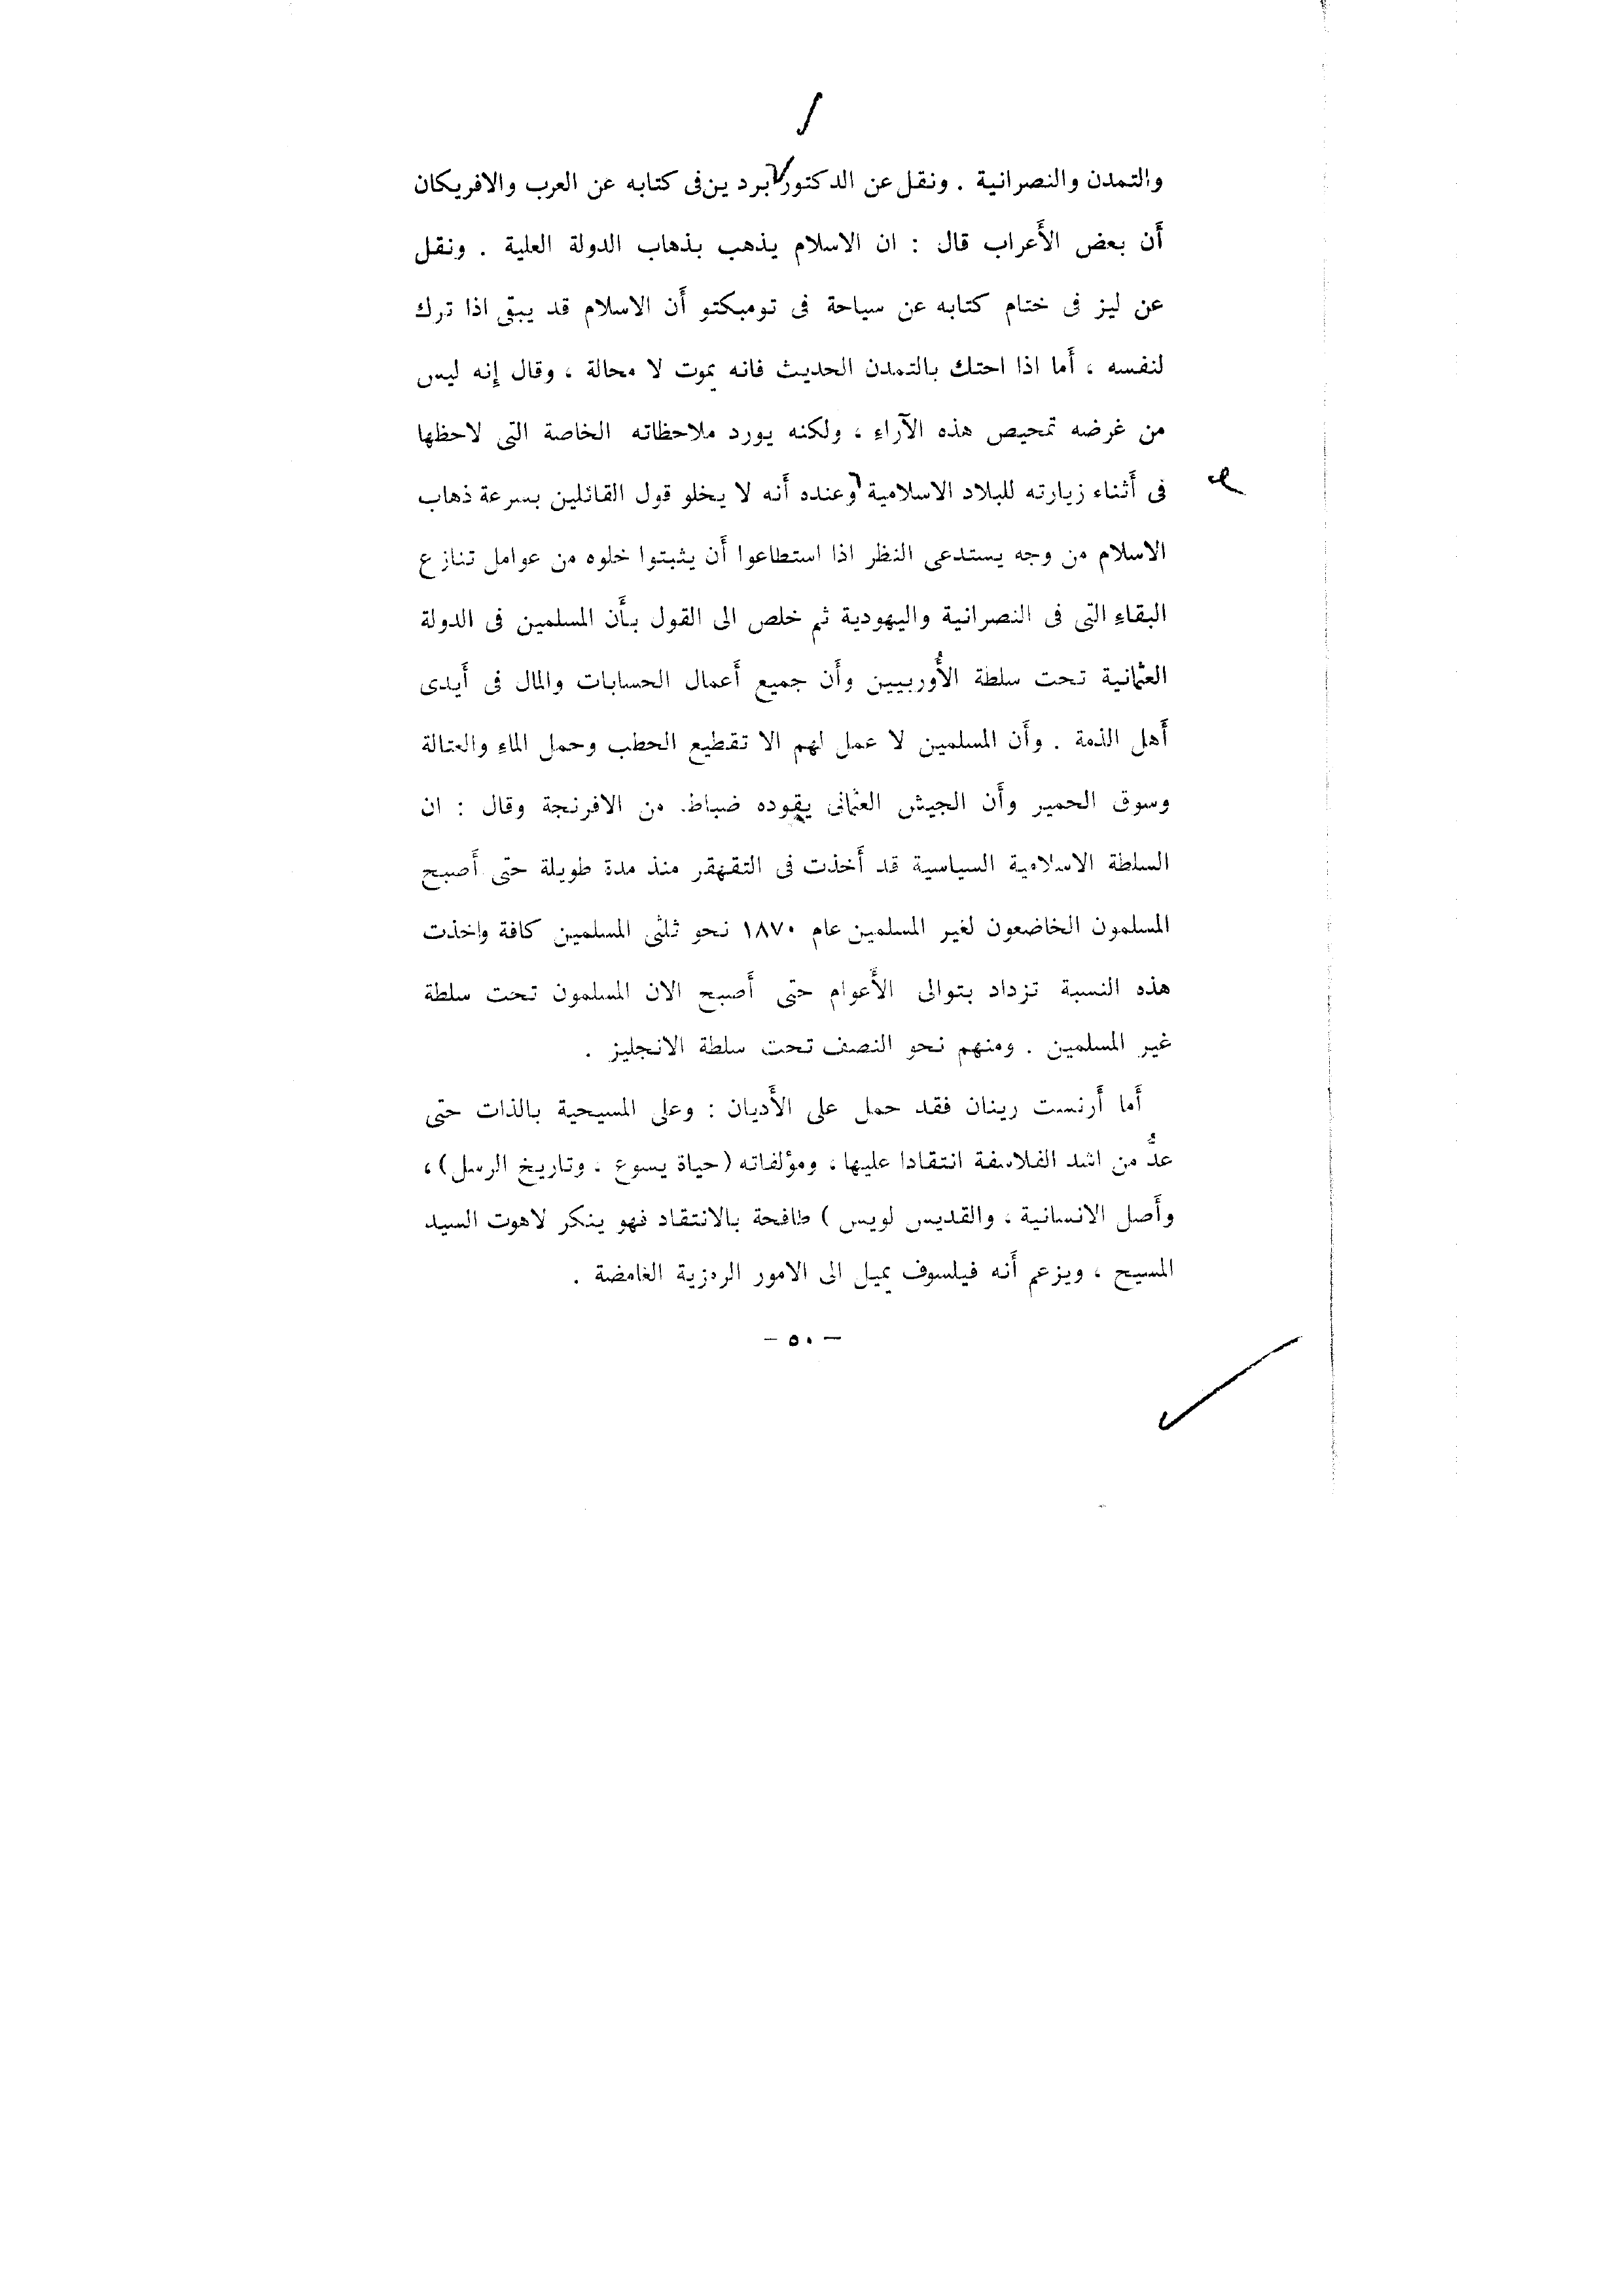 والتمدن والنصرانية . ونقل عن الدكتور بردين فى كتابه عن العرب والافريكان
أَن بعض الأَعراب قال : ان الاسلام يذهب بذهاب الدولة العلية . ونقل
عن ليز فى ختام كتابه عن سياحة فى تومبكتو أَن الاسلام قد يبقى اذا ترك
لنفسه ، أَما اذا احتك بالتمدن الحديث فانه يموت لا محالة ، وقال إنه ليس
من غرضه تمحيص هذه الآراء ، ولكنه يورد ملاحظاته الخاصة التى لاحظها
فى أَثناء زيارته للبلاد الاسلامية وعنده أَنه لا يخلو قول القائلين بسرعة ذهاب
الاسلام من وجه يستدعى النظر اذا استطاعوا أَن يثبتوا خلوه من عوامل تنازع
البقاء التى فى النصرانية واليهودية ثم خلص الى القول بأَن المسلمين فى الدولة
العثمانية تحت سلطة الأُوربيين وأَن جميع أَعمال الحسابات والمال فى أَيدى
أَهل الذمة . وأَن المسلمين لا عمل لهم الا تقطيع الحطب وحمل الماء والعتالة
وسوق الحمير وأَن الجيش العثمانى يقوده ضباط من الافرنجة وقال : ان
السلطة الاسلامية السياسية قد أَخذت فى التقهقر منذ مدة طويلة حتى أَصبح
المسلمون الخاضعون لغير المسلمين عام ١٨٧٠ نحو ثلثى المسلمين كافة واخذت
هذه النسبة تزداد بتوالى الأَعوام حتى أَصبح الان المسلمون تحت سلطة
غير المسلمين . ومنهم نحو النصف تحت سلطة الانجليز .
أَما أَرنست رينان فقد حمل على الأَديان : وعلى المسيحية بالذات حتى
عدُّ من اشد الفلاسفة انتقادا عليها ، ومؤلفاته (حياة يسوع ، وتاريخ الرسل) ،
وأَصل الانسانية ، والقديس لويس ) طافحة بالانتقاد فهو ينكر لاهوت السيد
المسيح ، ويزعم أَنه فيلسوف يميل الى الامور الرمزية الغامضة .
— ٥٠ —